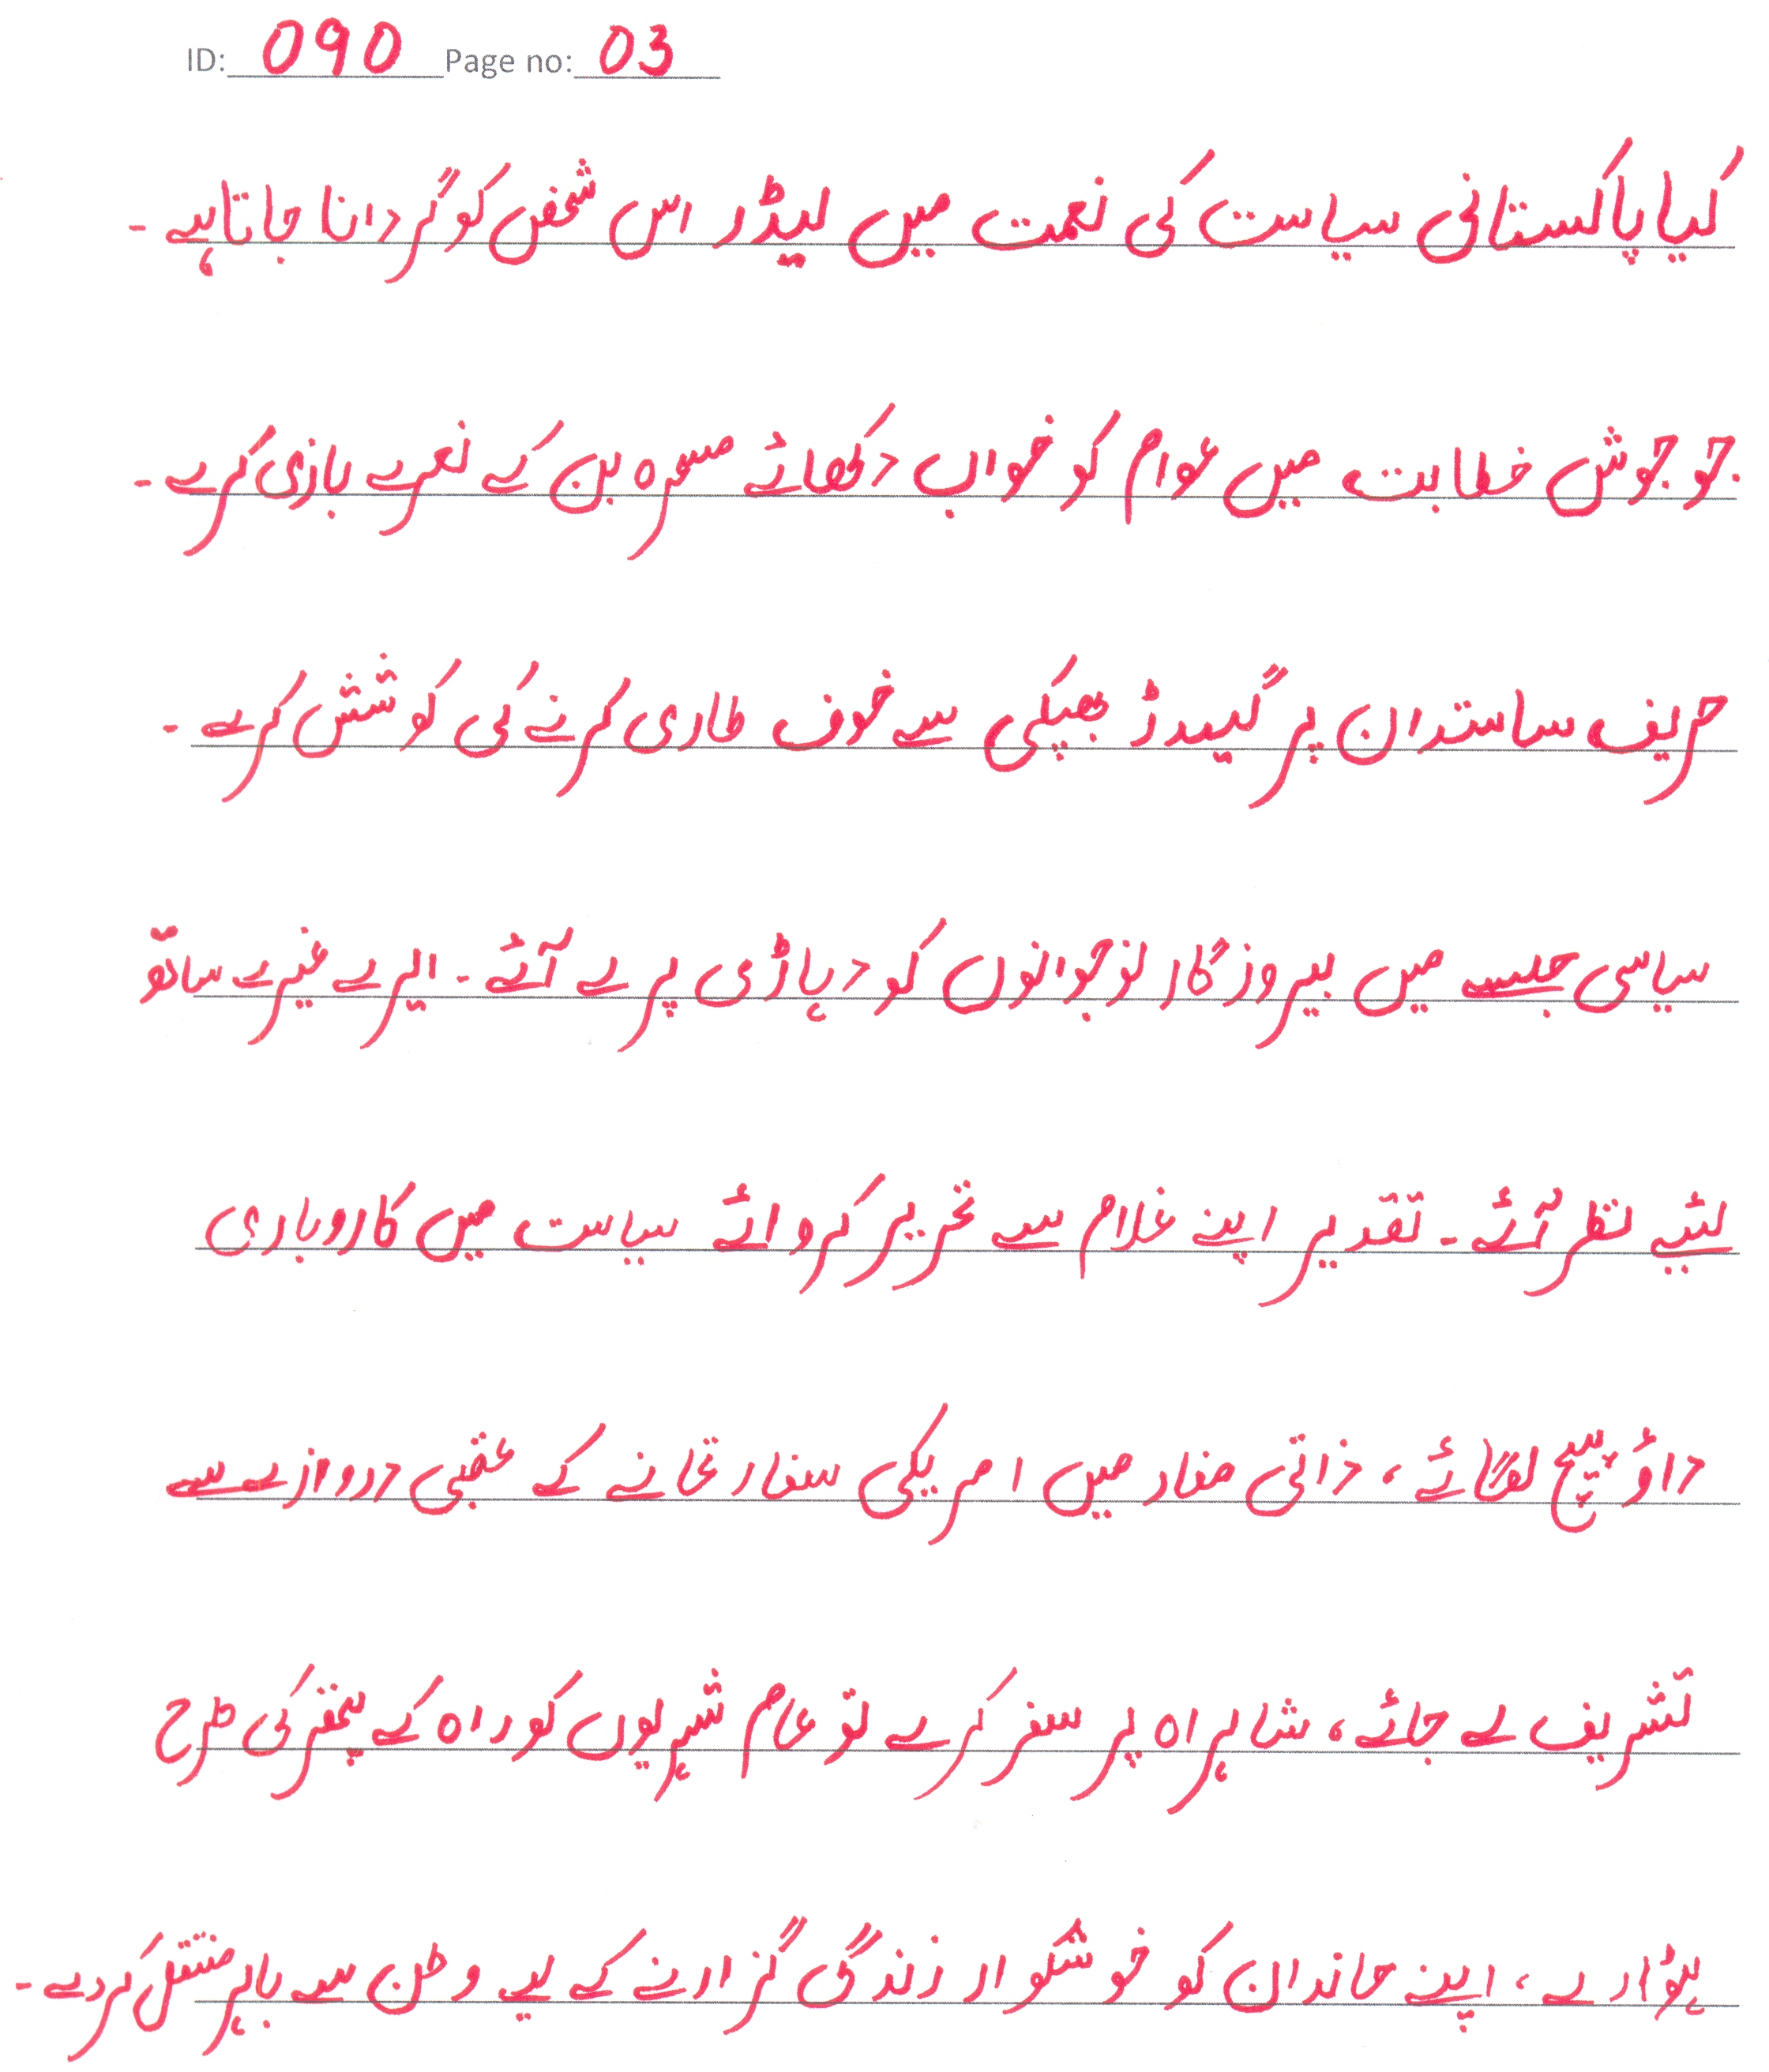 ID: 090 Page no: 03
کیا پاکستانی سیاست کی نعمت میں لیڈر اس شخص کو گردانا جاتا ہے۔
جو جوش خطابت میں عوام کو خواب دکھائے مسخرہ بن کے نعرے بازی کرے۔
حریف ساستدان پر گیدڑ بھپکی سے خوف طاری کرنے کی کوشش کرے۔
سیاسی جلسے میں بیروزگار نوجوانوں کو دہاڑی پر لے آئے۔ ایرے غیرے ساتھ
لئیے نظر آئے۔ تقدیر اپنے غلام سے تحریر کروائے سیاست میں کاروباری
داؤ پیچ لڑائے، ذاتی مفاد میں امریکی سفارتخانے کے عقبی دروازے سے
تشریف لے جائے، شاہراہ پر سفر کرے تو عام شہریوں کو راہ کے پتھر کی طرح
ہٹوا دے، اپنے خاندان کو خوشگوار زندگی گزارنے کے لیے وطن سے باہر منتقل کردے۔